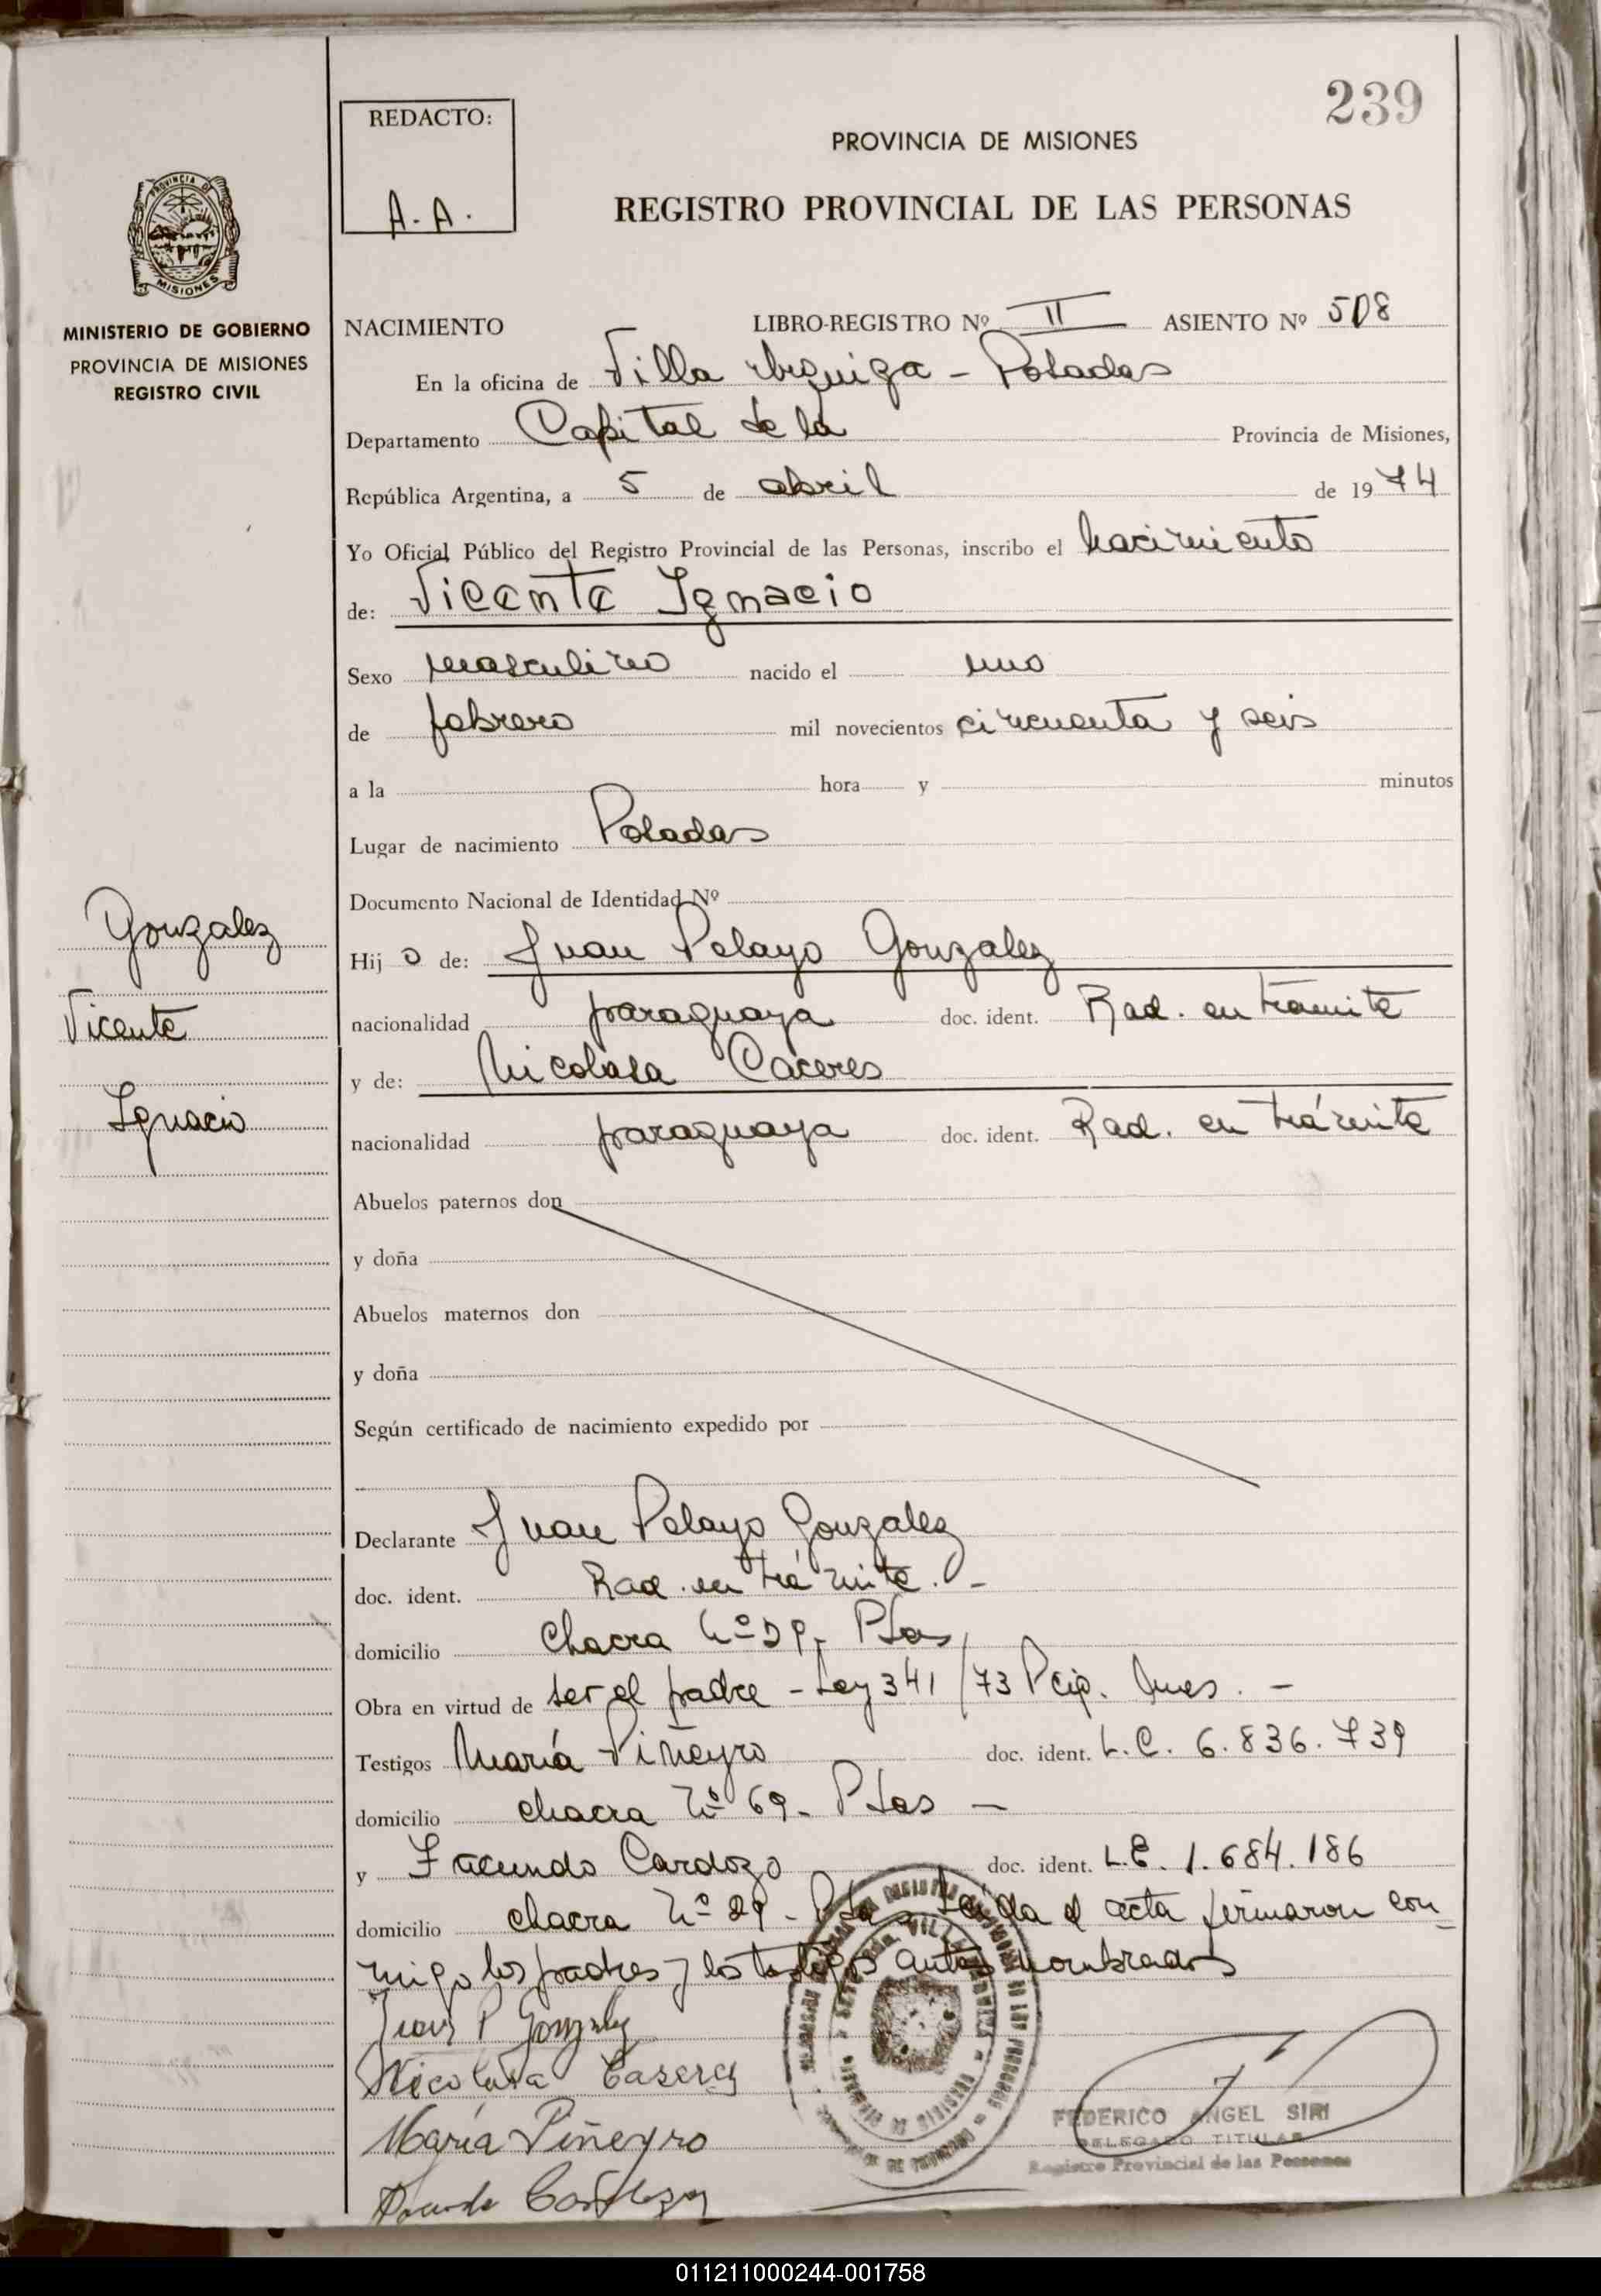 239
REDACTO:
A. A.
PROVINCIA DE MISIONES
REGISTRO PROVINCIAL DE LAS PERSONAS
PROVINCIA DE
MISIONES
MINISTERIO DE GOBIERNO
PROVINCIA DE MISIONES
REGISTRO CIVIL
NACIMIENTO LIBRO-REGISTRO Nº II ASIENTO Nº 508
En la oficina de Villa Urquiza - Posadas
Departamento Capital de la Provincia de Misiones,
República Argentina, a 5 de abril de 1974
Yo Oficial Público del Registro Provincial de las Personas, inscribo el nacimiento
de: Vicente Ignacio
Sexo masculino nacido el uno
de febrero mil novecientos cincuenta y seis
a la hora y minutos
Lugar de nacimiento Posadas
Documento Nacional de Identidad Nº
Gonzalez
Vicente
Ignacio
Hijo de: Juan Pelayo Gonzalez
nacionalidad paraguaya doc. ident. Rad. en trámite
y de: Nicolasa Caceres
nacionalidad paraguaya doc. ident. Rad. en trámite
Abuelos paternos don
y doña
Abuelos maternos don
y doña
Según certificado de nacimiento expedido por
Declarante Juan Pelayo Gonzalez
doc. ident. Rad. en trámite. -
domicilio Chacra Nº Pdas
Obra en virtud de ser el padre - Ley 341/73 Pcia. Mnes. -
Testigos María Piñeyro doc. ident. L.C. 6.836.739
domicilio chacra Nº 69- Pdas -
y Facundo Cardozo doc. ident. L.E. 1.684.186
domicilio chacra Nº - Leída el acta firmaron con
migo los padres y los testigos antes nombrados
Juan P Gonzalez
Nicolasa Caseres
María Piñeyro
FEDERICO ANGEL SIRI
DELEGADO TITULAR
Registro Provincial de las Personas
011211000244-001758